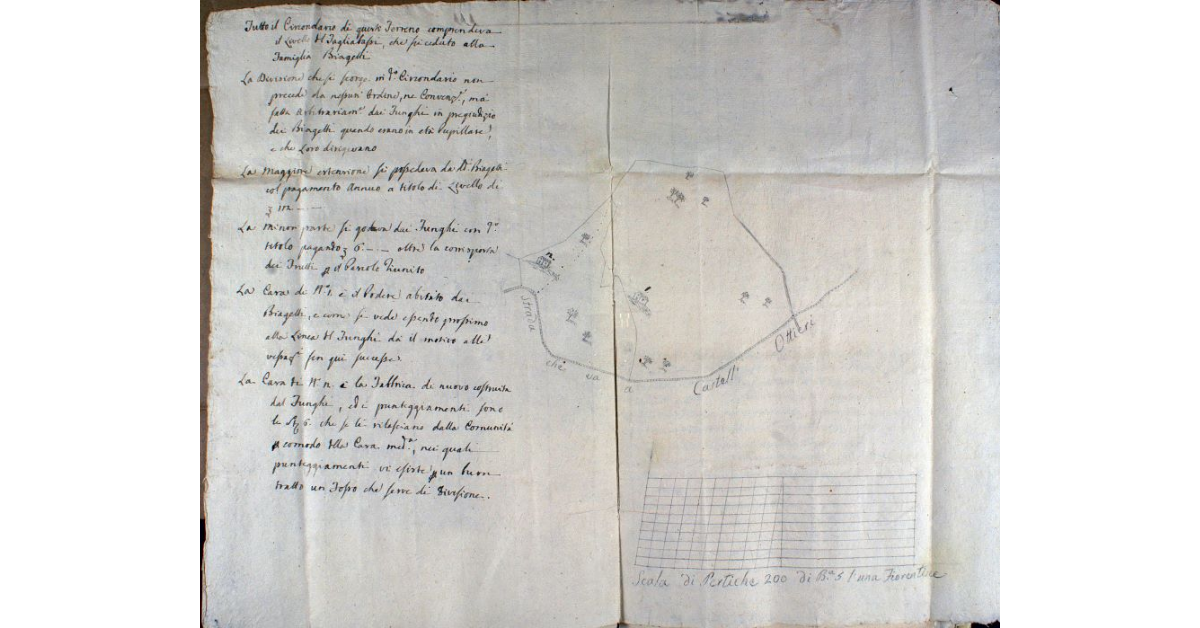 Tutto il Circondario di questo Terreno comprendeva
il Livello di Tagliatassi, che fù ceduto alla
Famiglia Biagetti
La Divisione che si scorge in d.º Circondario non
precedè da nessun Ordine, ne Convenz.e, mà
fatta arbitrariam.e dai Funghi in pregiudizio
dei Biagetti quando erano in età Pupillare,
e che Loro dirigevano
La Maggiore estenzione si possedeva da D.i Biagetti
col pagamento Annuo a titolo di Livello di
La minor parte si godeva dai Funghi con d.º
titolo pagando 6 - - oltre la corrisposta
dei Frutti
La Casa di N.º 1. è il Podere abitato dai
Biagetti, e come si vede essendo prossimo
alla Linea di Funghi dà il motivo alle
vessaz.i fin qui successe.
La Casa di N.º n. è la Fabbrica di nuovo costruita
dal Funghi, ed i punteggiamenti sono
le 6. che se li rilasciano dalla Comunità
comodo della Casa med.a, nei quali
punteggiamenti vi esiste p un buon
tratto un Fosso che serve di Divisione.
n
1
Strada
che va a Castell' Ottieri
Scala di Pertiche 200 di B.a 5 l'una Fiorentine